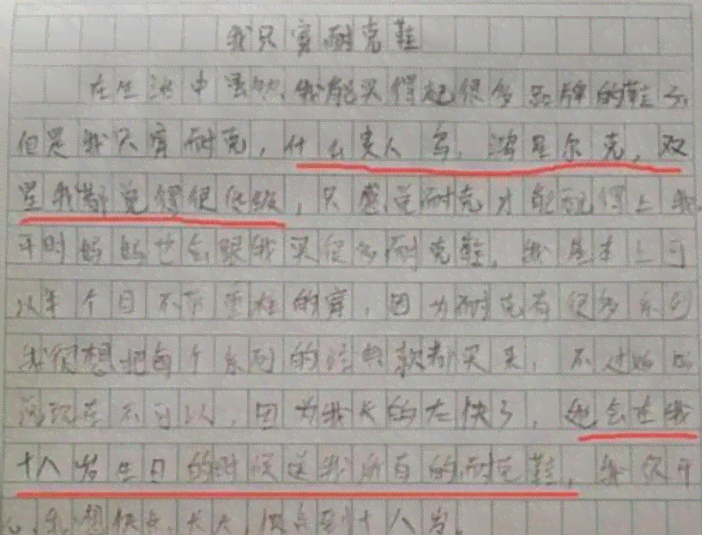 我只穿耐克鞋
在生活中 我能买得起很多品牌的鞋子,
但是我只穿耐克,什么贵人鸟,鸿星尔克,双
星我都觉得很低级,只感觉耐克才能配得上我.
平时妈妈也会跟我买很多耐克鞋,我基本上可
以半个月不带重样的穿,因为耐克有很多系列
我很想把每个系列的经典款都买来,不过妈妈
说现在不可以,因为我长的太快了,她会在我
十八岁生日的时候送我所有的耐克鞋,我很开
心,我想快点长大,快点到十八岁.